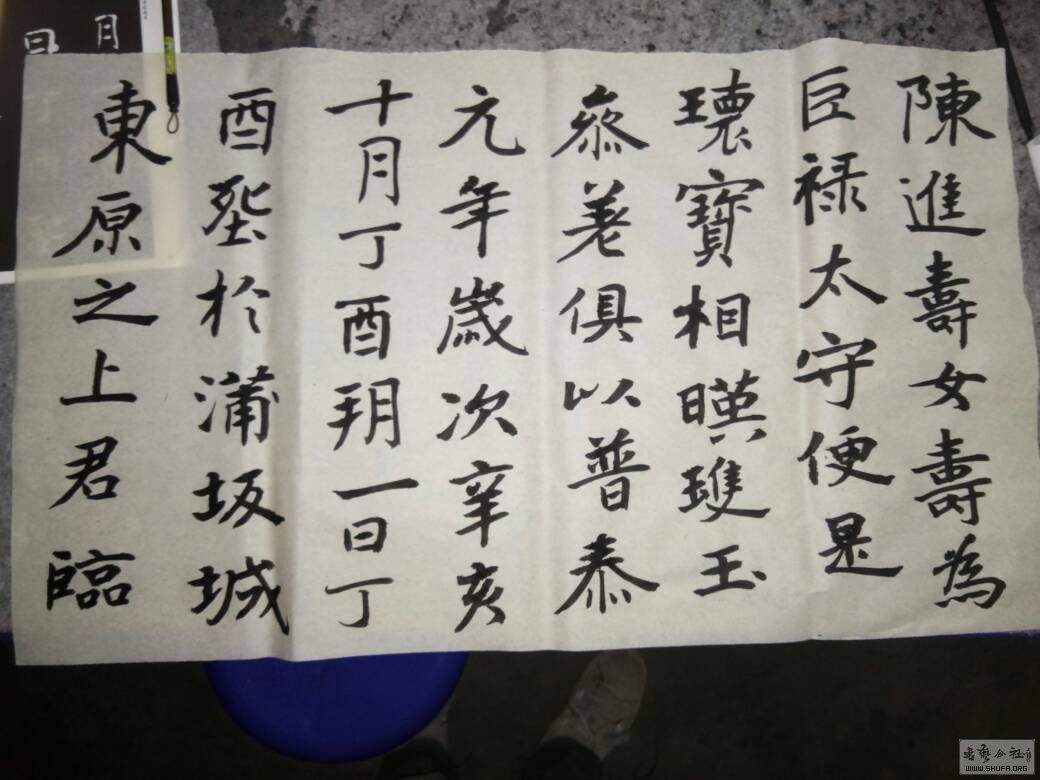 陳進壽女壽為
巨禄太守便是
瓌寶相暎瓊玉
叅差俱以普泰
元年歲次辛亥
十月丁酉朔一日丁
酉塟於蒲坂城
東原之上君臨
月
日
書藝公社
WWW.SHUFA.ORG